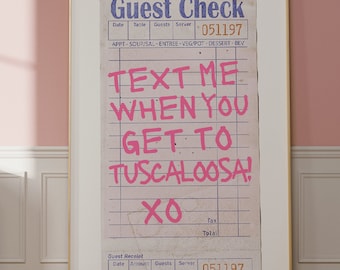 Guest Check
Date Table Guests Server 051197
APPT - SOUP/SAL - ENTREE - VEG/POT - DESSERT - BEV
TEXT ME
WHEN YOU
GET TO
TUSCALOOSA!
XO
Tax
Total
Guest Receipt
Date Amount Guests Server 051197